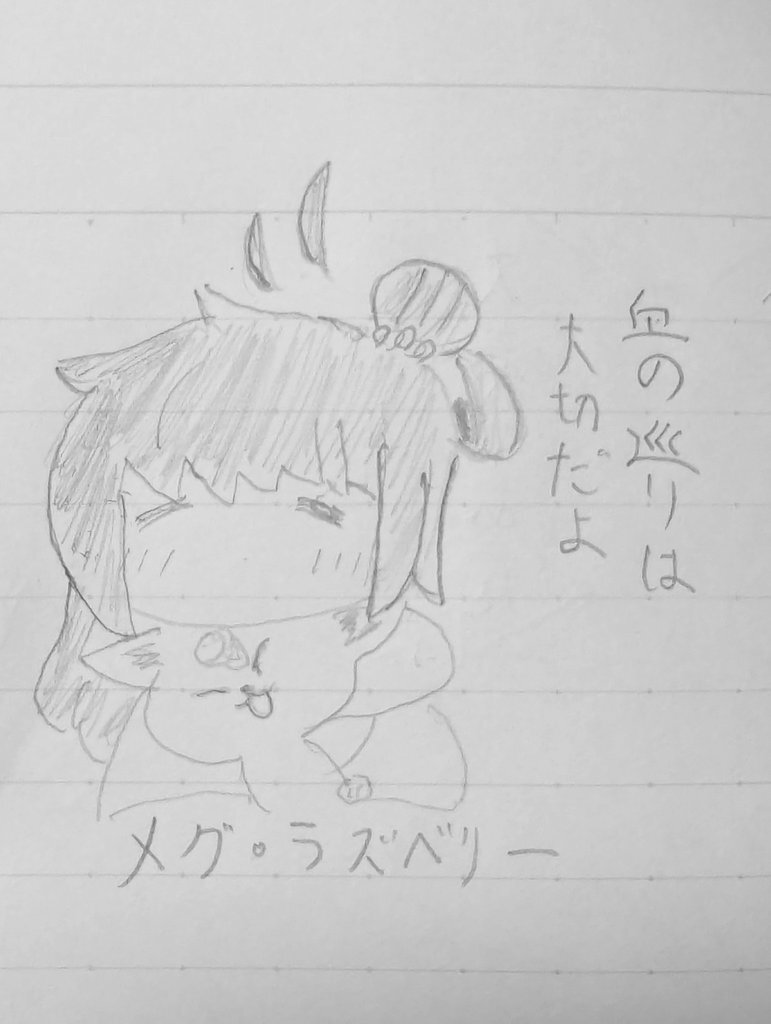 血の巡りは
大切だよ
メグ・ラズベリー